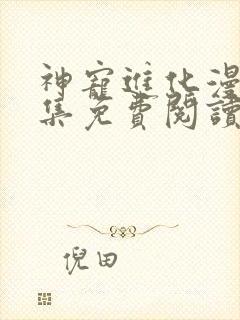 神寵進化漫
集免費閱讀
倪田